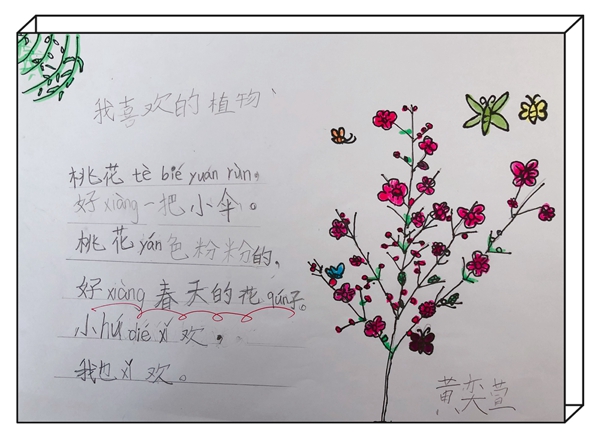 我喜欢的植物
桃花tè bié yuán rùn。
好xiàng一把小伞。
桃花yán色粉粉的，
好xiàng春天的花qún子。
小hú dié xǐ欢，
我也xǐ欢。
黄奕萱